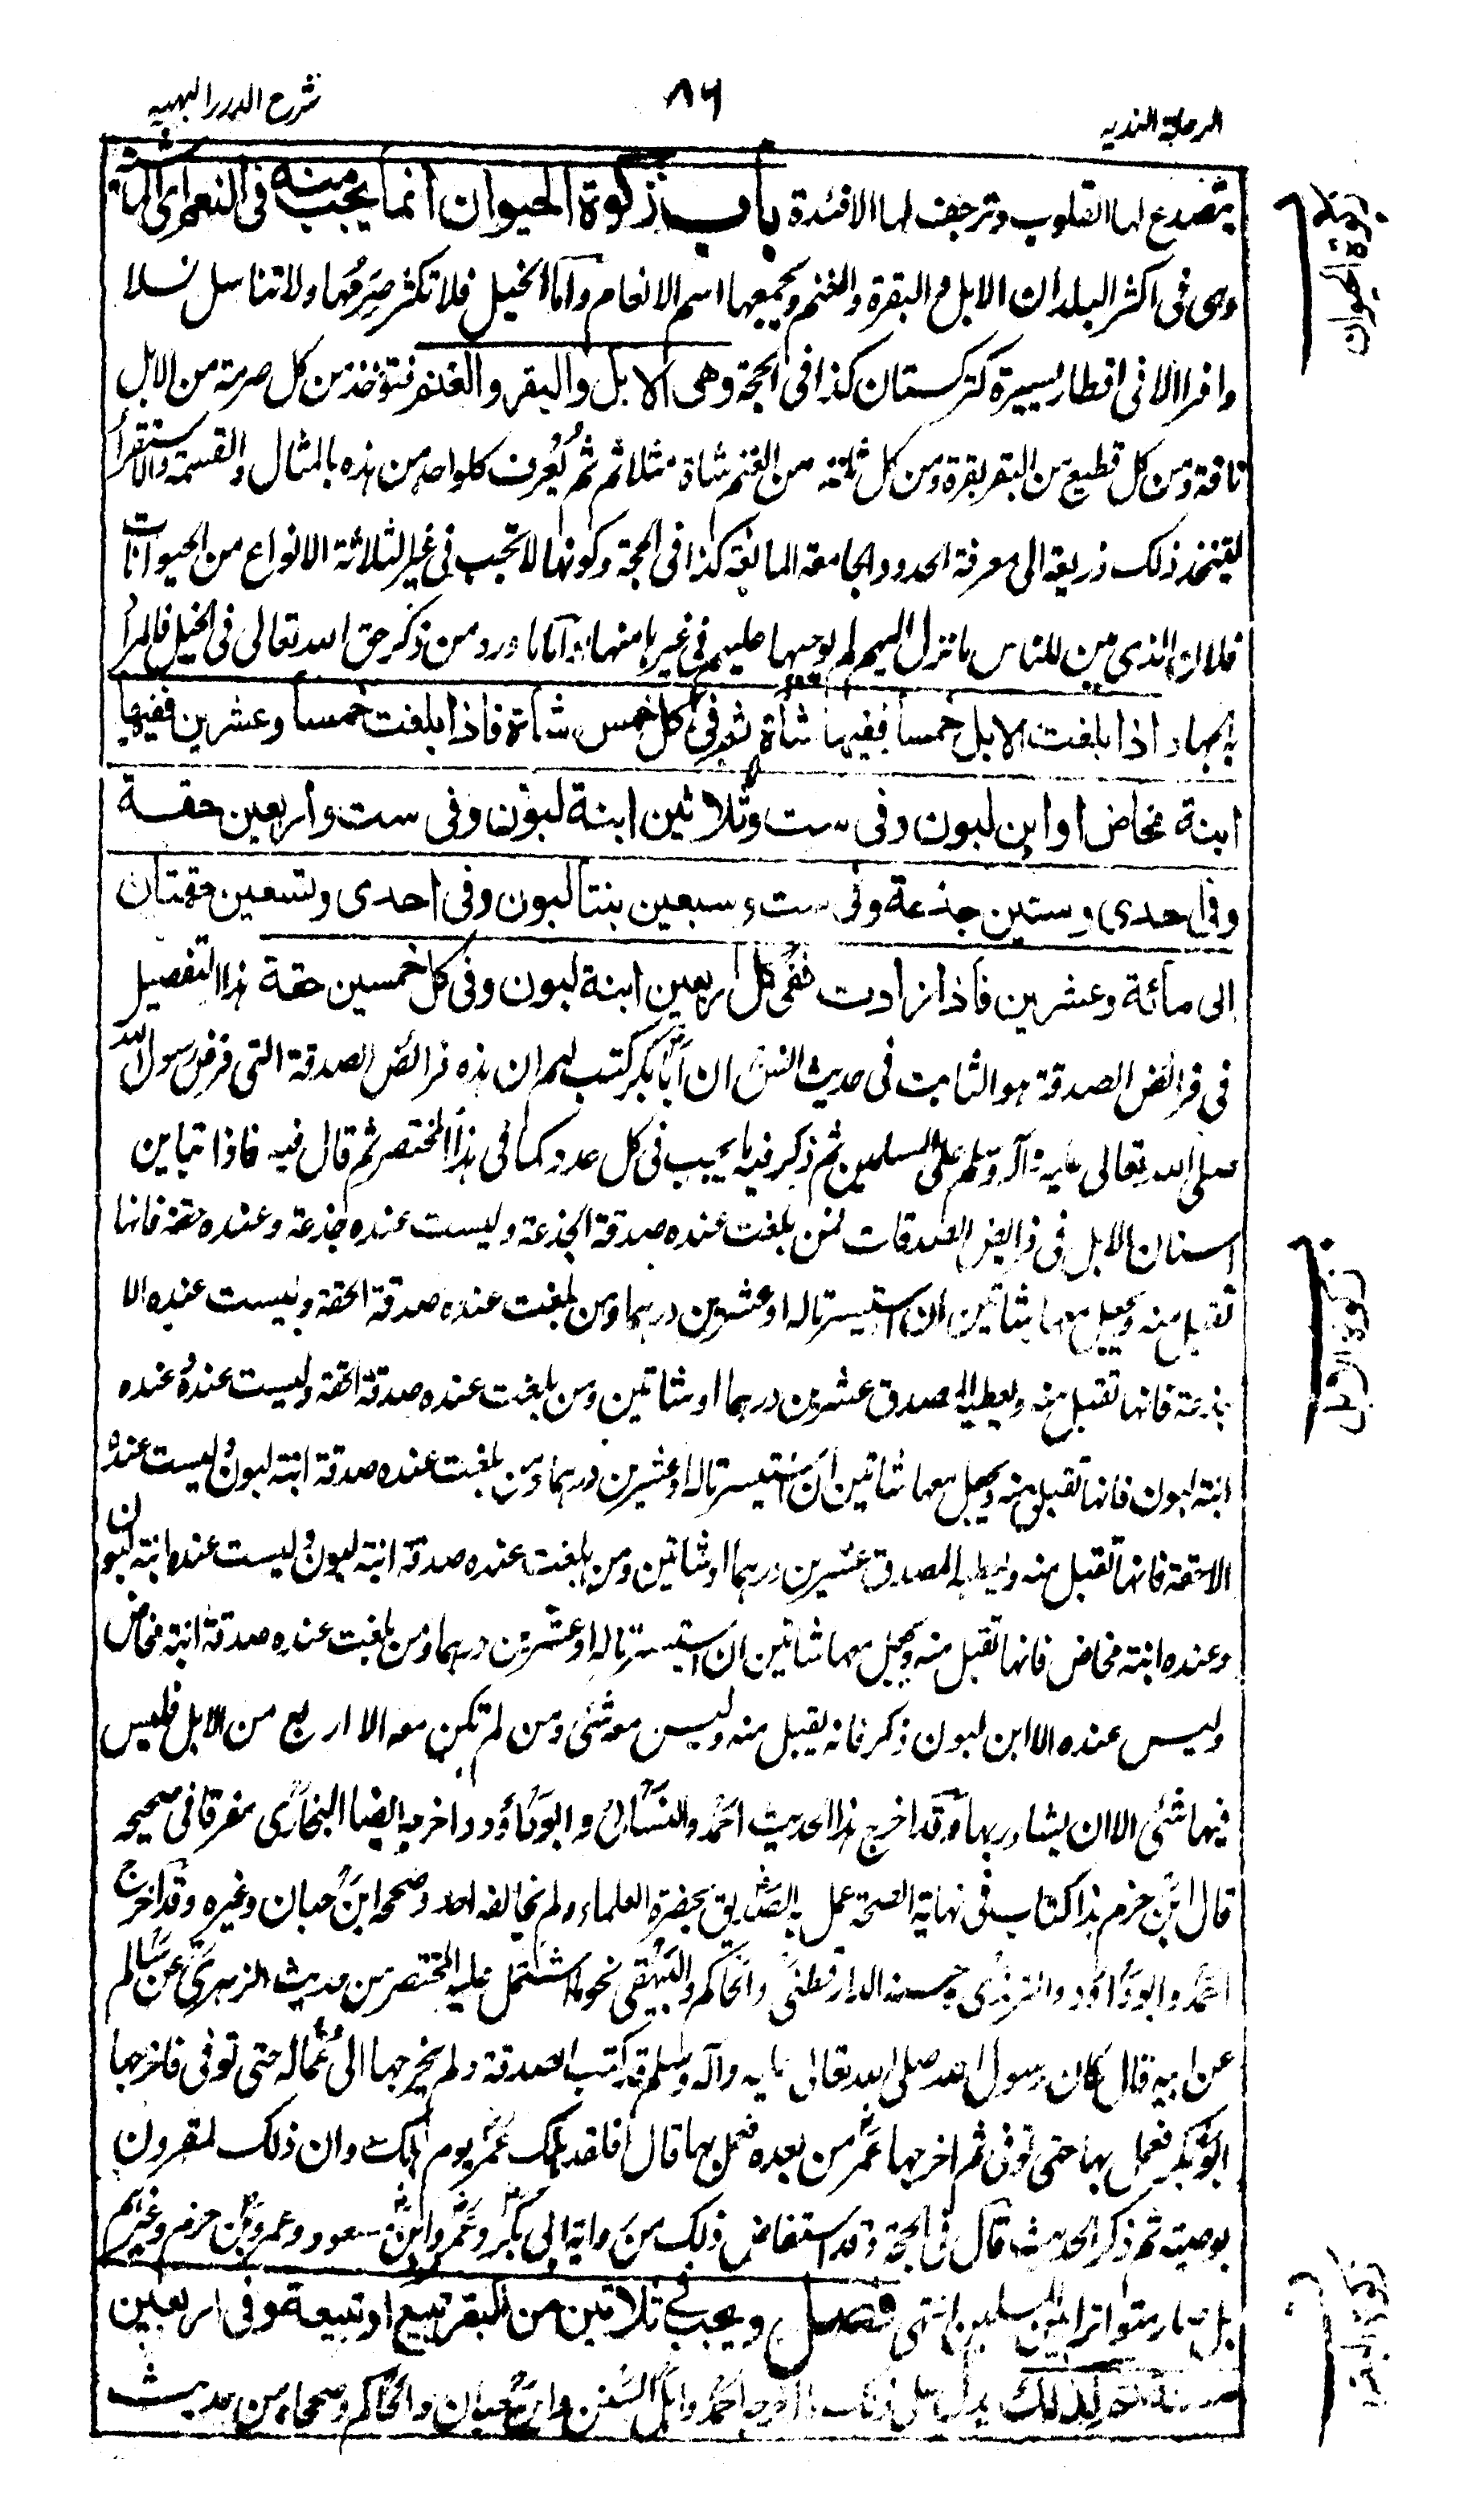 شرح الدرر البهيه
٨٦
الروضة الندية
يتصدع لها القلوب وترجف لها الافئدة باب زكوة الحيوان انما يجب منه فى النعم اى الماشية
وهى فى اكثر البلدان الابل و البقرة والغنم ويجمعها اسم الانعام واما الخيل فلا تكثر صرمها ولا تناسل نسلا
وافرا الا فى اقطار يسيرة كتركستان كذا فى الحجة وهى الابل والبقر والغنم فتؤخذ من كل صرمة من الابل
ناقة ومن كل قطيع من البقر بقرة ومن كل ثلة من الغنم شاة مثلا ثم ثم يُعرف كلواحد من هذه بالمثال والقسمة والاستقراء
ليتخذ ذلك ذريعة الى معرفة الحدود الجامعة المانعة كذا فى الحجة وكونها لا تجب فى غير الثلاثة الانواع من الحيوانات
فلان الذى بين للناس ما نزل اليهم لم يوجبها عليهم فى غيرها منها واما ما ورد من ذكر حق الله تعالى فى الخيل فالمراد
به الجهاد اذا بلغت الابل خمسا ففيها شاة ثم فى كل خمس شاة فاذا بلغت خمسا وعشرين ففيها
ابنة مخاض او ابن لبون وفى ست وثلاثين ابنة لبون وفى ست واربعين حقة
وفى احدى وستين جذعة وفى ست وسبعين بنتا لبون وفى احدى وتسعين حقتان
الى مائة وعشرين فاذا زادت ففى كل اربعين ابنة لبون وفى كل خمسين حقة هذا التفصيل
فى فرائض الصدقة هو الثابت فى حديث انس ان ابا بكر كتب لهم ان هذه فرائض الصدقة التى فرض رسول الله
صلى الله تعالى عليه وآله وسلم على المسلمين ثم ذكر فيه ما يجب فى كل عدد كما فى هذا المختصر ثم قال فيه فاذا تباين
اسنان الابل فى فرايض الصدقات فمن بلغت عنده صدقة الجذعة وليست عنده جذعة وعنده حقة فانها
تقبل منه ويجعل معها شاتين ان استيسرتا له او عشرين درهما ومن بلغت عنده صدقة الحقة وليست عنده الا
جذعة فانها تقبل منه ويعطيه المصدق عشرين درهما او شاتين ومن بلغت عنده صدقة الحقة وليست عنده عنده
ابنة لبون فانها تقبل منه ويجعل معها شاتين ان استيسرتا له او عشرين درهما ومن بلغت عنده صدقة ابنة لبون وليست عنده
الا حقة فانها تقبل منه ويعطيه المصدق عشرين درهما او شاتين ومن بلغت عنده صدقة ابنة لبون وليست عنده ابنة لبون
وعنده ابنة مخاض فانها تقبل منه ويجعل معها شاتين ان استيسرتا له او عشرين درهما ومن بلغت عنده صدقة ابنة مخاض
وليس عنده الا ابن لبون ذكر فانه يقبل منه وليس معه شئ ومن لم تكن معه الا اربع من الابل فليس
فيها شئ الا ان يشاء ربها وقد اخرج هذا الحديث احمد والنسائى وابو داؤد واخرجه ايضا البخارى مفرقا فى صحيحه
قال ابن حزم هذا كتاب فى نهاية الصحة عمل به الصديق بحضرة العلماء ولم يخالفه احد وصححه ابن حبان وغيره وقد اخرج
احمد وابو داؤد والترمذى وحسنه الدارقطنى والحاكم والبيهقى نحو ما اشتمل عليه المختصر من حديث الزهرى عن سالم
عن ابيه قال كان رسول الله صلى الله تعالى عليه وآله وسلم قد كتب الصدقة ولم يخرجها الى عماله حتى توفى فاخرجها
ابو بكر فعمل بها حتى توفى ثم اخرجها عمر من بعده فعمل بها قال فلقد هلك عمر يوم هلك وان ذلك لمقرون
بوصيته ثم ذكر الحديث قال فى الحجة وقد استفاض ذلك من رواية ابى بكر وعمر وابن مسعود وعمرو بن حزم وغيرهم
بل صار متواترا بين المسلمين انتهى فصل ويجب فى ثلاثين من البقر تبيع او تبيعة وفى اربعين
مسنة ثم كذلك يدل على ذلك ما اخرجه احمد واهل السنن وابن حبان والحاكم وصححاه من حديث
زكوة الحيوان
زكوة الابل
زكوة البقر